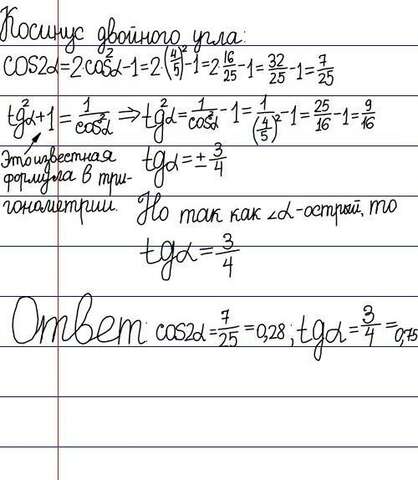 Косинус двойного угла:
cos2α=2cos²α-1=2(4/5)²-1=2 16/25-1=32/25-1=7/25
tg²α+1=1/cos²α ⇒tg²α=1/cos²α-1=1/(4/5)²-1=25/16-1=9/16
Это известная
формула в три-
гонометрии.
tgα=±3/4
Но так как ∠α-острый, то
tgα=3/4
Ответ: cos2α=7/25=0,28; tgα=3/4=0,75